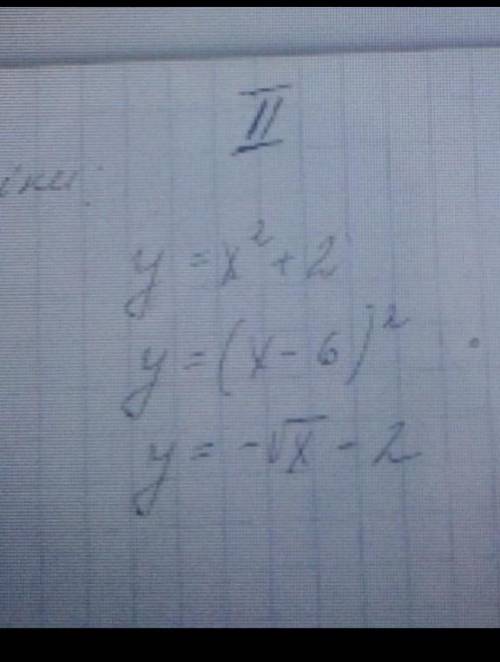 II
y = x² + 2
y = (x - 6)²
y = -√x - 2